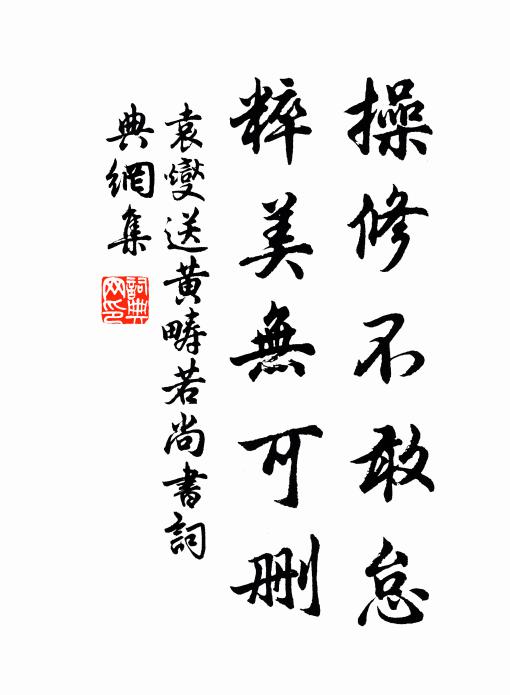 操修不敢怠
粹美無可删
袁燮送黄疇若尚書詞
典網集
詞典
网印